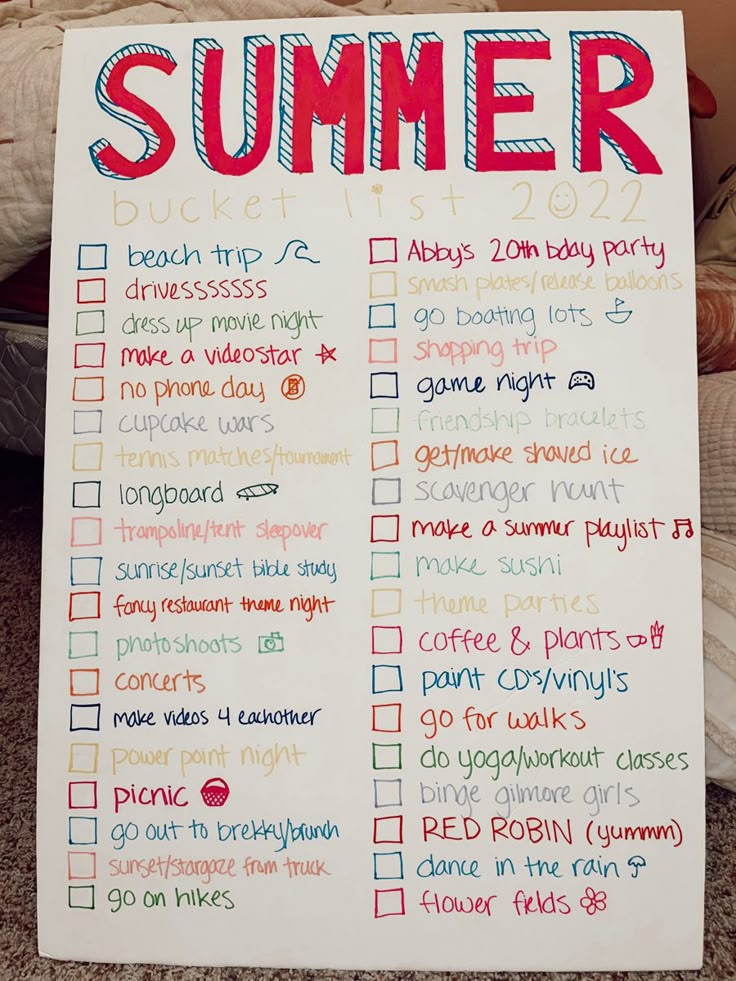 SUMMER
bucket list 2022
beach trip
drivessssss
dress up movie night
make a videostar
no phone day
cupcake wars
tennis matches/tournament
longboard
trampoline/tent sleepover
sunrise/sunset bible study
fancy restaurant theme night
photoshoots
concerts
make videos 4 eachother
power point night
picnic
go out to brekky/brunch
sunset/stargaze from truck
go on hikes
Abby's 20th bday party
smash plates/release balloons
go boating lots
shopping trip
game night
friendship bracelets
get/make shaved ice
scavenger hunt
make a summer playlist
make sushi
theme parties
coffee & plants
paint CD's/vinyl's
go for walks
do yoga/workout classes
binge gilmore girls
RED ROBIN (yummm)
dance in the rain
flower fields